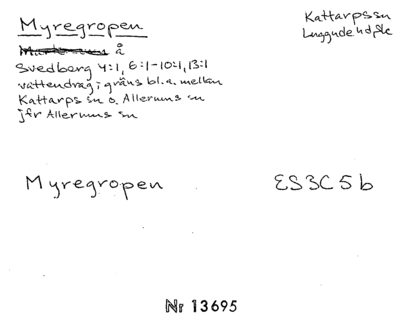 Myregropen
Kattarps sn
Luggude hd, Sk
å
Svedberg 4:1, 6:1-10:1, 13:1
vattendrag i gräns bl.a. mellan
Kattarps sn o. Allerums sn
jfr Allerums sn
Myregropen
ES3C5b
Nr 13695